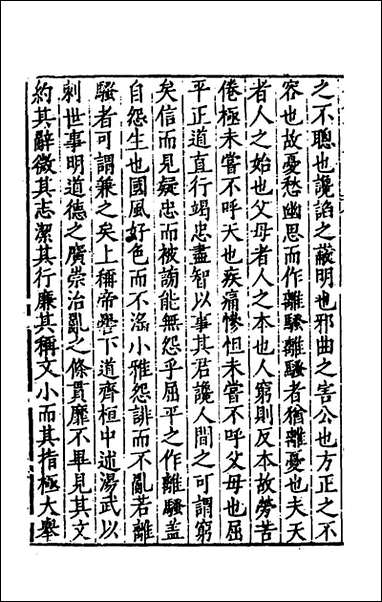 之不聰也讒諂之蔽明也邪曲之害公也方正之不
容也故憂愁幽思而作離騷離騷者猶離憂也夫天
者人之始也父母者人之本也人窮則反本故勞苦
倦極未嘗不呼天也疾痛慘怛未嘗不呼父母也屈
平正道直行竭忠盡智以事其君讒人間之可謂窮
矣信而見疑忠而被謗能無怨乎屈平之作離騷蓋
自怨生也國風好色而不淫小雅怨誹而不亂若離
騷者可謂兼之矣上稱帝嚳下道齊桓中述湯武以
刺世事明道德之廣崇治亂之條貫靡不畢見其文
約其辭微其志潔其行廉其稱文小而其指極大舉